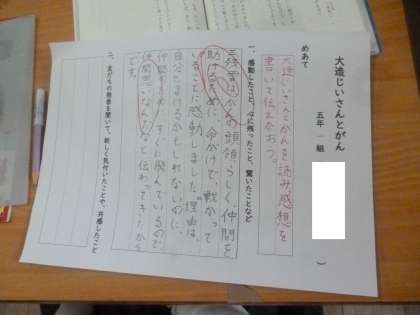 大造じいさんとがん
五年 一組
）
めあて
大造じいさんとがんを読み感想を
書いて伝えあおう。
一、感動したこと、心に残ったこと、驚いたことなど
残雪ががんの頭領らしく、仲間を
助けるために、命がけで、戦かって
いることに感動しました。理由は、
自分がまけるかもしれないのに、
仲間のためにすぐに飛んでいるので
仲間思いなんだなと伝わってきたから
です。
二、友だちの発表を聞いて、新しく気付いたことや、共感したこと